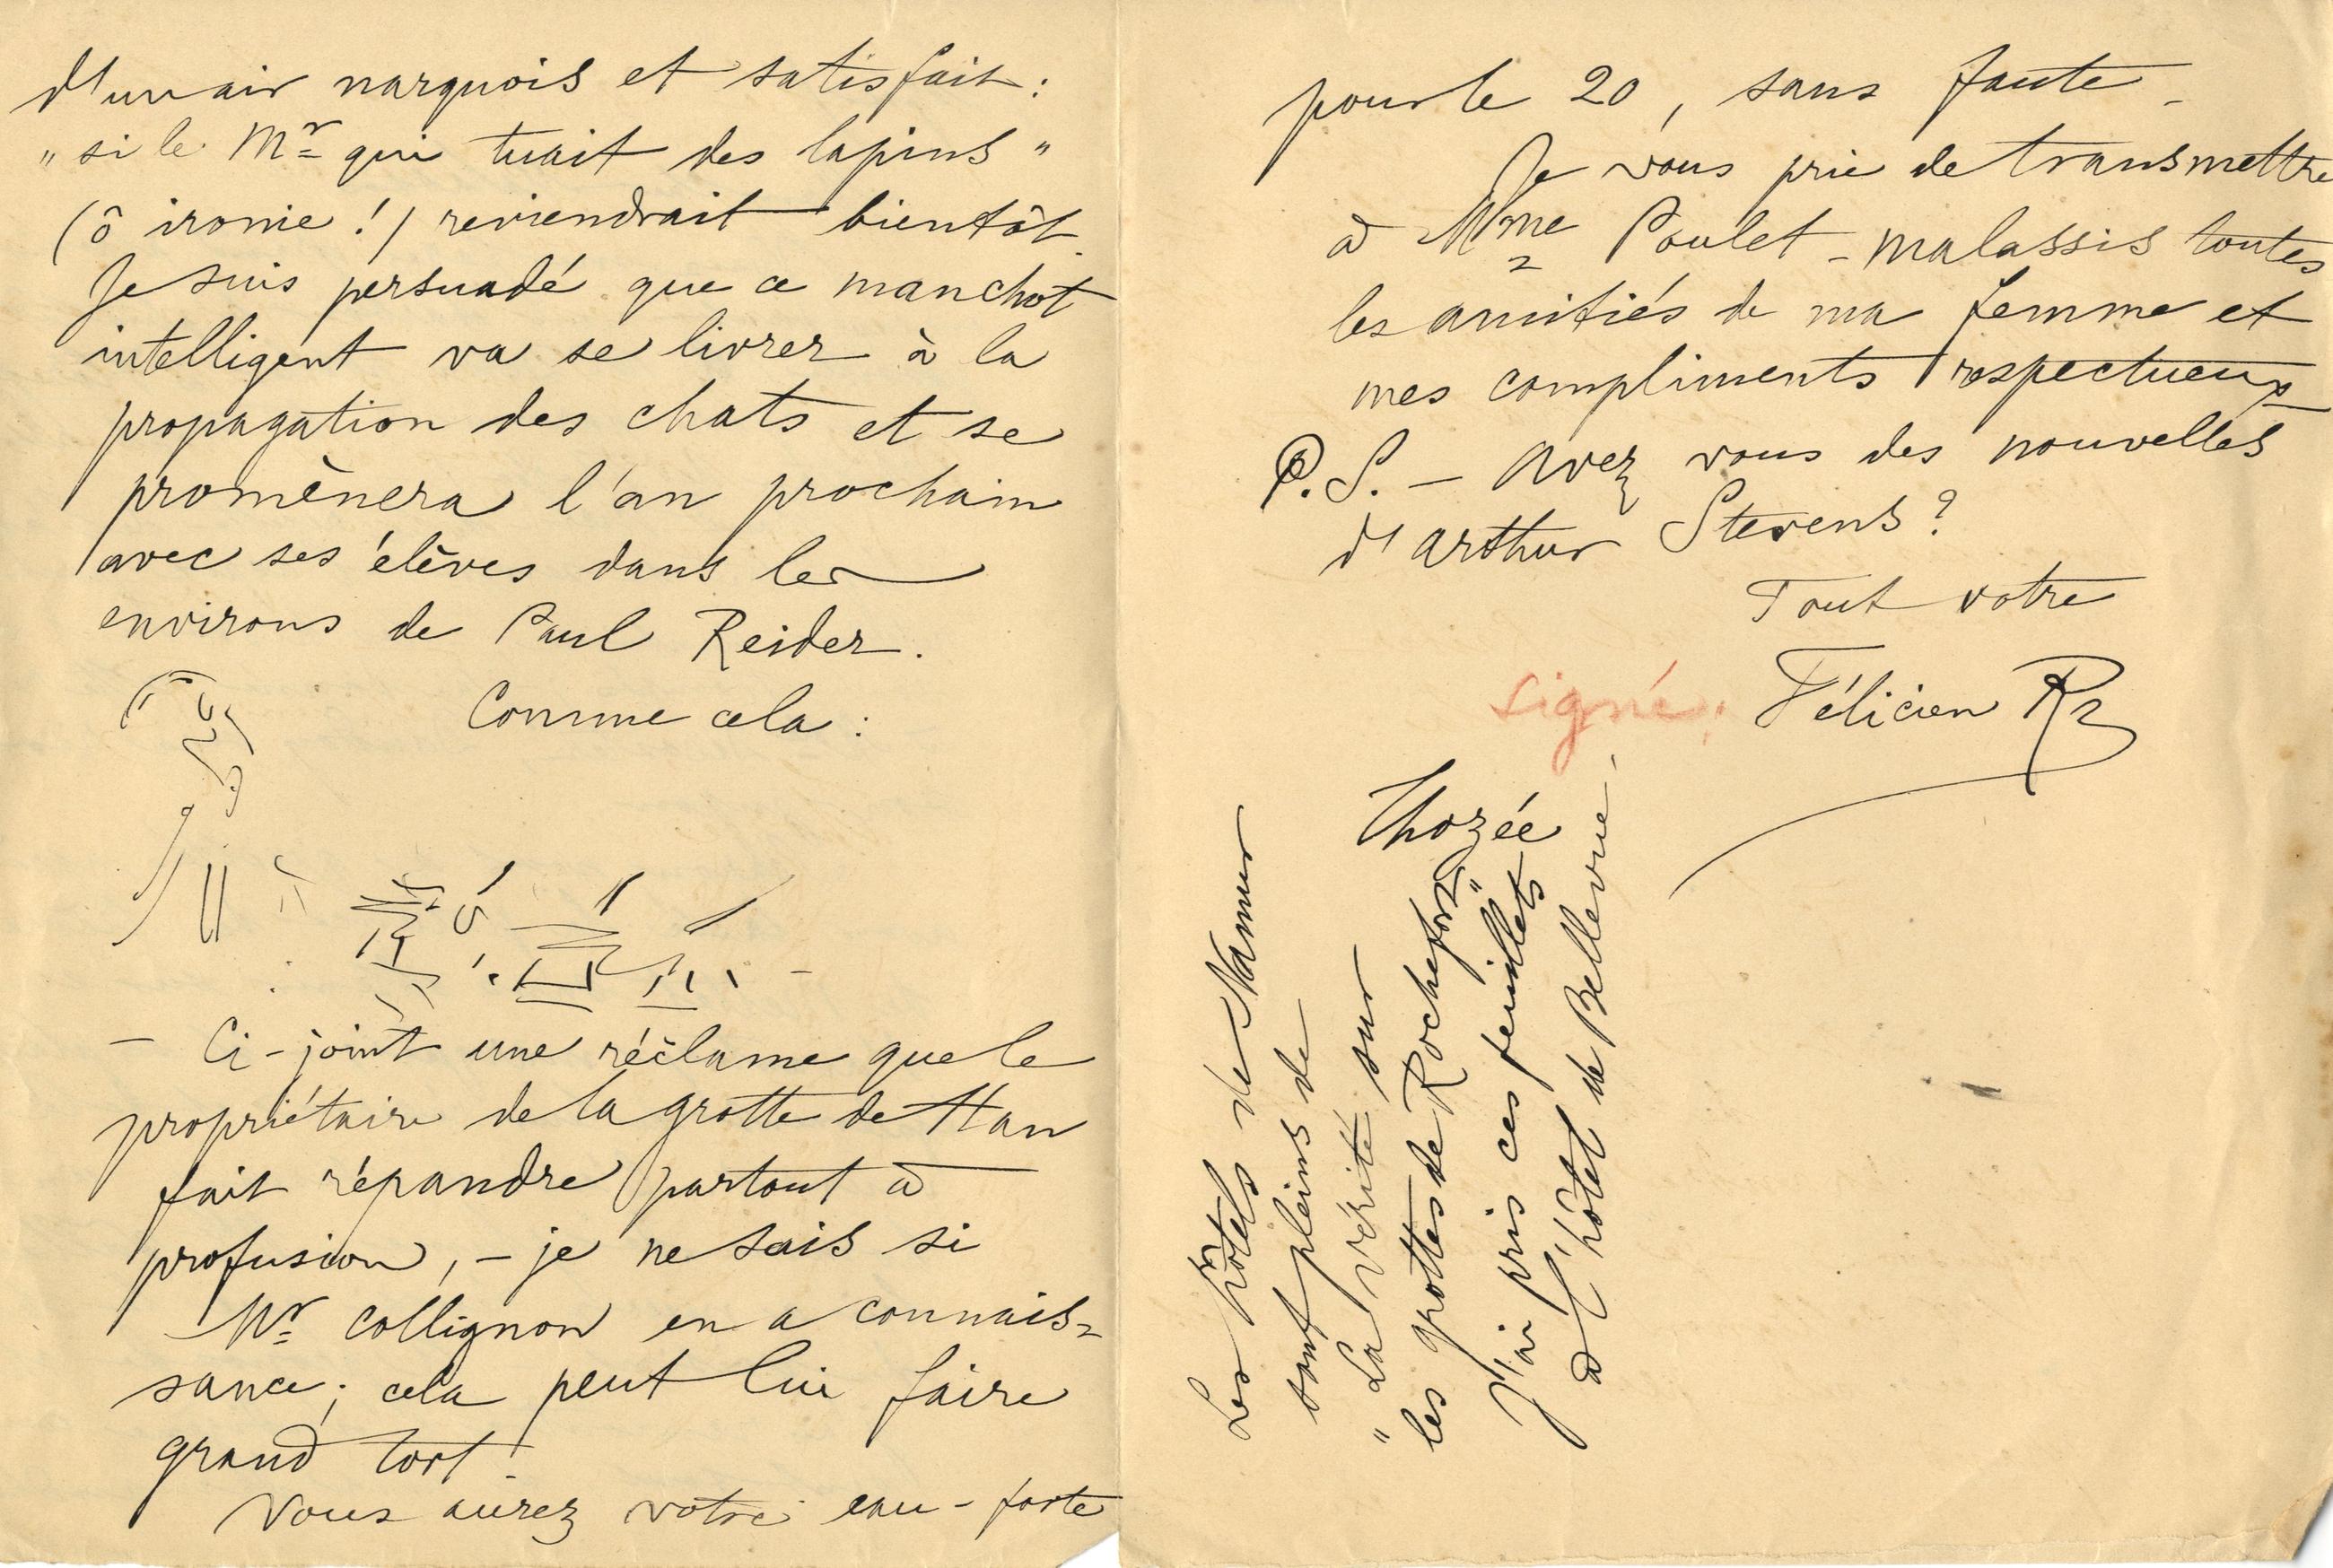 d'un air narquois et satisfait :
" si le Mr qui tuait des lapins "
(ô ironie !) reviendrait bientôt.
Je suis persuadé que ce manchot
intelligent va se livrer à la
propagation des chats et se
promènera l'an prochain
avec ses élèves dans les
environs de Paul Reider.
Comme cela :
– Ci-joint une réclame que le
propriétaire de la grotte de Han
fait répandre partout à
profusion, – je ne sais si
Mr Collignon en a connais=
sance ; cela peut lui faire
grand tort.
Vous aurez votre eau-forte
pour le 20, sans faute –
Je vous prie de transmettre
à Mme Poulet-Malassis toutes
les amitiés de ma femme et
mes compliments respectueux
P.S. – Avez vous des nouvelles
d'Arthur Stevens ?
Tout votre
signé : Félicien Rz
Thozée
Les hôtels de Namur
sont pleins de
" La vérité sur
les grottes de Rochefort "
J'ai pris ces feuillets
à l'hôtel de Bellevue.